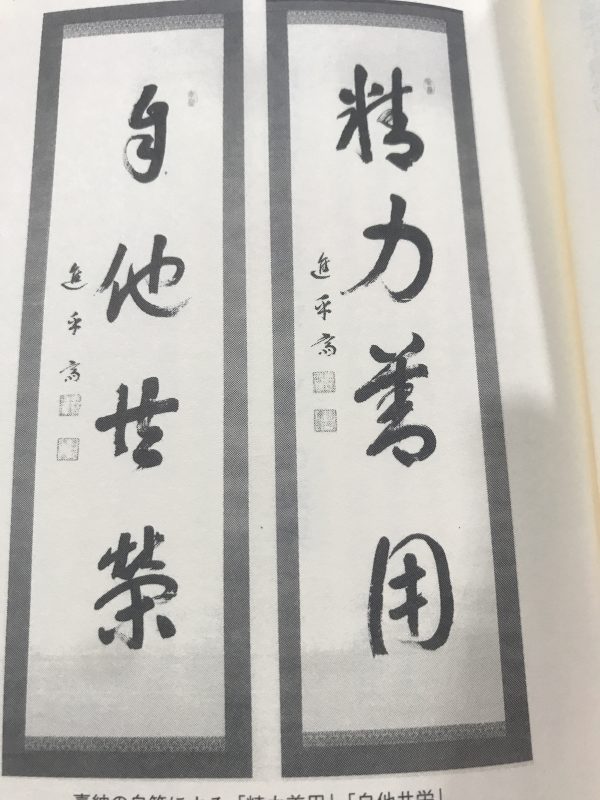 精力善用
進乎斎
自他共榮
進乎斎
嘉納の自筆による「精力善用」「自他共栄」